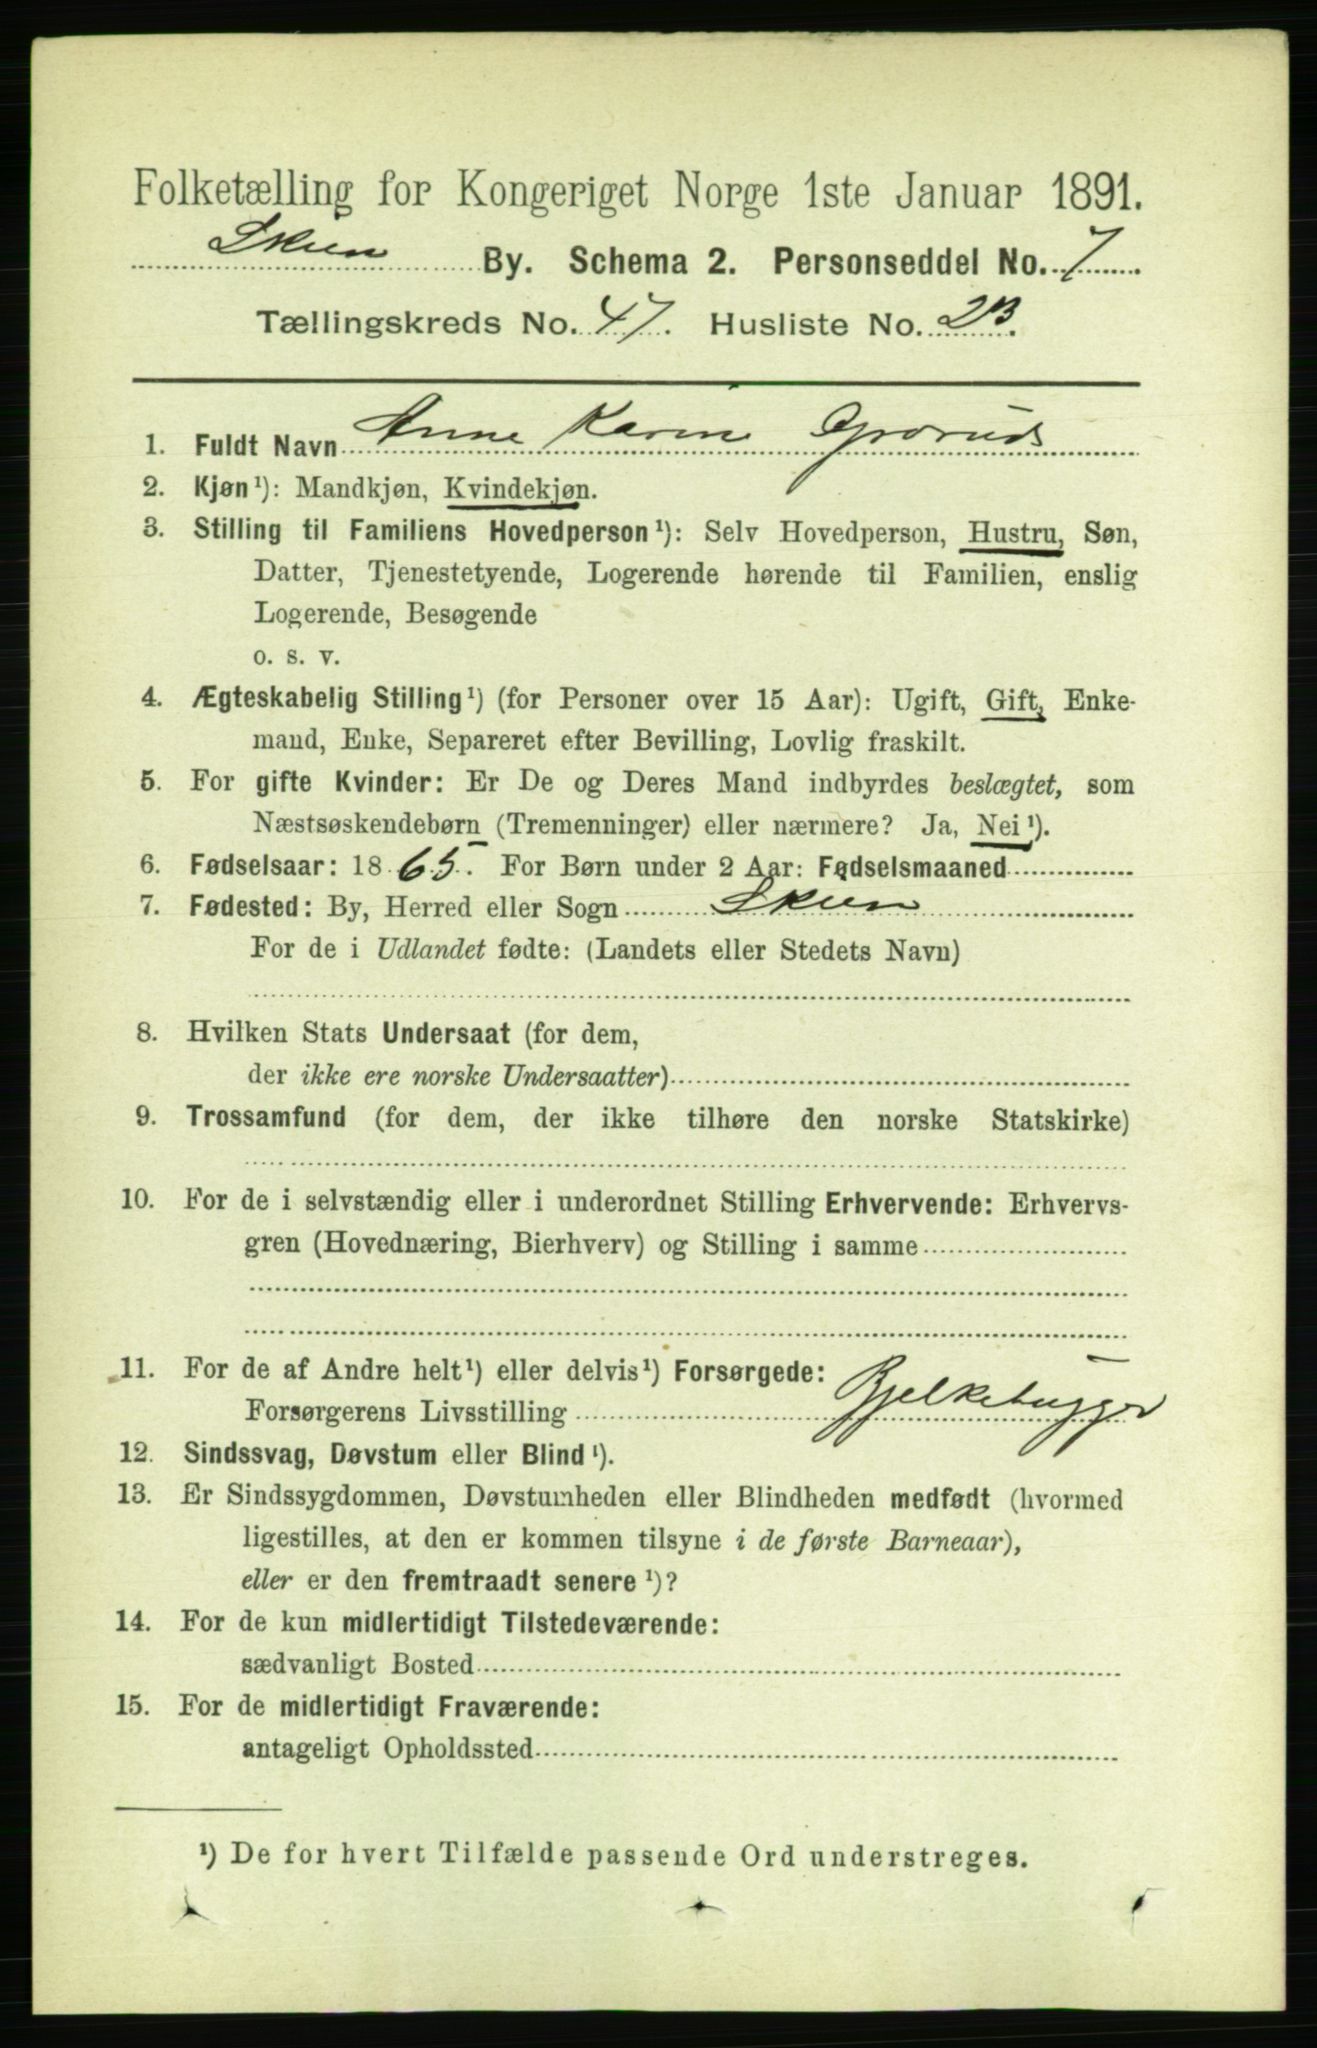 Folketælling for Kongeriget Norge 1ste Januar 1891.
Skien By. Schema 2. Personseddel No. 7
Tællingskreds No. 47. Husliste No. 23.
1. Fuldt Navn Anne Karine Grorud
2. Kjøn¹): Mandkjøn, Kvindekjøn.
3. Stilling til Familiens Hovedperson¹): Selv Hovedperson, Hustru, Søn,
Datter, Tjenestetyende, Logerende hørende til Familien, enslig
Logerende, Besøgende
o. s. v.
4. Ægteskabelig Stilling¹) (for Personer over 15 Aar): Ugift, Gift, Enke-
mand, Enke, Separeret efter Bevilling, Lovlig fraskilt.
5. For gifte Kvinder: Er De og Deres Mand indbyrdes beslægtet, som
Næstsøskendebørn (Tremenninger) eller nærmere? Ja, Nei¹).
6. Fødselsaar: 1865. For Børn under 2 Aar: Fødselsmaaned
7. Fødested: By, Herred eller Sogn Skien
For de i Udlandet fødte: (Landets eller Stedets Navn)
8. Hvilken Stats Undersaat (for dem,
der ikke ere norske Undersaatter)
9. Trossamfund (for dem, der ikke tilhøre den norske Statskirke)
10. For de i selvstændig eller i underordnet Stilling Erhvervende: Erhvervs-
gren (Hovednæring, Bierhverv) og Stilling i samme
11. For de af Andre helt¹) eller delvis¹) Forsørgede:
Forsørgerens Livsstilling Bjelkebygger
12. Sindssvag, Døvstum eller Blind¹).
13. Er Sindssygdommen, Døvstumheden eller Blindheden medfødt (hvormed
ligestilles, at den er kommen tilsyne i de første Barneaar),
eller er den fremtraadt senere¹)?
14. For de kun midlertidigt Tilstedeværende:
sædvanligt Bosted
15. For de midlertidigt Fraværende:
antageligt Opholdssted
¹) De for hvert Tilfælde passende Ord understreges.